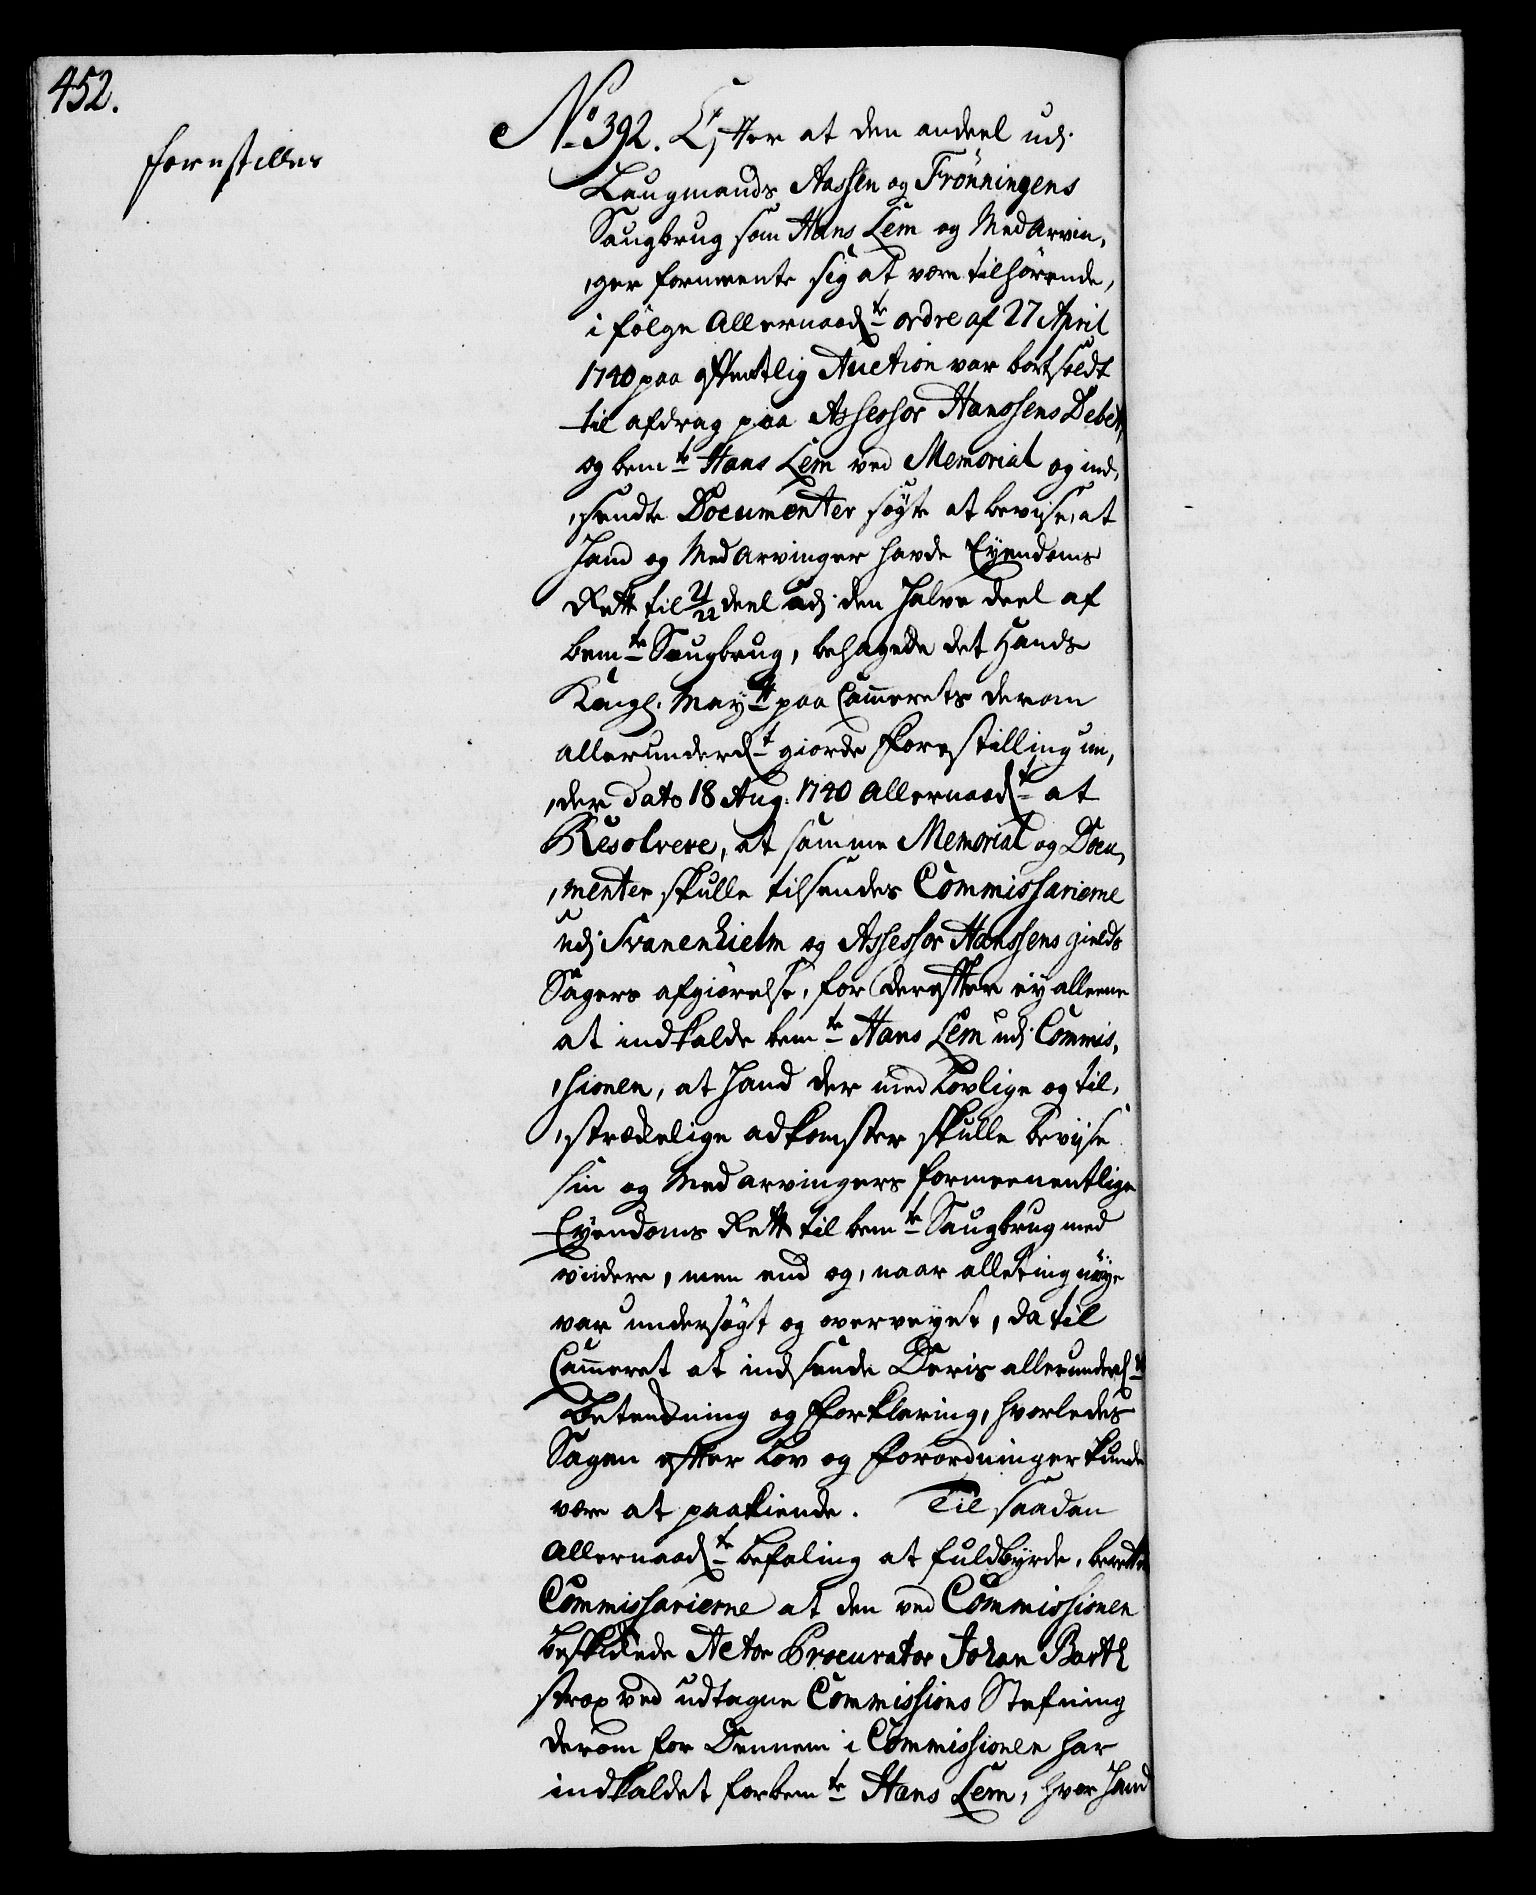 452.
forestilles
No 392. Efter at den andeel udj
Laugmands Aassen og Frönningens
Saugbrug som Hans Lem og Medarvin,
,ger formeente sig at være tilhörende,
i fölge Allernaadste ordre af 27 April
1740 paa offentlig Auction var bortsoldt
til afdrag paa Assessor Hanssens Debet,
og bemte Hans Lem ved Memorial og ind,
,sendte Documenter sögte at beviise, at
hand og Medarvinger havde Eyendoms
Rett til 21/22 deel udj den halve deel af
bemte Saugbrug, behagede det Hands
Kongl. Mayst paa Cammerets derom
allerunderdst giorde Forestilling un,
,der dato 18 Aug: 1740 Allernaadst at
Resolvere, at samme Memorial og Docu,
,menter skulle tilsendes Commissarierne
udj Svanenhielm og Assessor Hanssens gields
Sagers afgiörelse, for derefter ey alleene
at indkalde bemte Hans Lem udj Commis,
,sionen, at hand der med Lovlige og til,
,strekkelige adkomster skulle beviise
sin og Medarvingers formeenentlige
Eyendoms Rett til bemte Saugbrug med
videre, men end og, naar alleting nöye
var undersögt og overveyet, da til
Cammeret at indsende Deris allerunderdste
Betenkning og Forklaring, hvorledes
Sagen efter Lov og Forordninger kunde
være at paakiende. Til saadan
Allernaadste befaling at fuldbyrde, beretter
Commissarierne at den ved Commissionen
beskikkede Actor Procurator Johan Barth
strax ved udtagne Commissions Stefning
derom for Dennem i Commissionen har
indkaldet forbemte Hans Lem, hvor hand